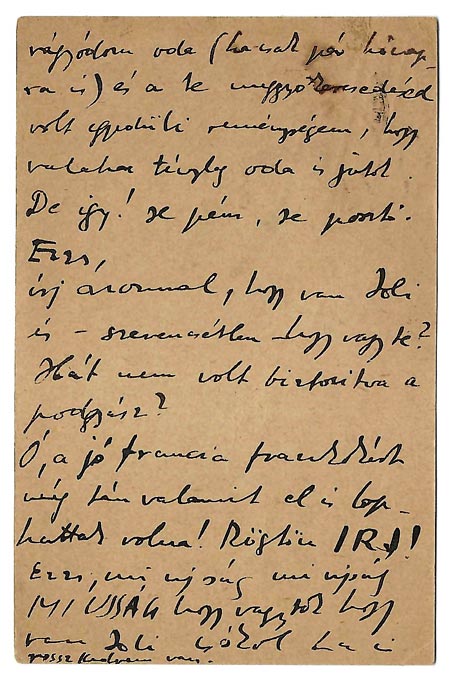 vágyódom oda (ha csak pár hónap-
ra is) és a te meggyökeresedésed
volt egyedüli reménységem, hogy
valaha tényleg oda is jutok.
De így! se pénz, se
Erzs,
írj azonnal, hogy van Joli
és – szerencsétlen hogy vagy te?
Hát nem volt biztosítva a
podgyász?
Ó, a jó francia frankokért
még tán valamit el is lop-
hattak volna! Rögtön IRJ!
Erzs, mi ujság mi ujság
MI UJSÁG hogy vagytok hogy
van Joli csókol
rossz kedvem van.